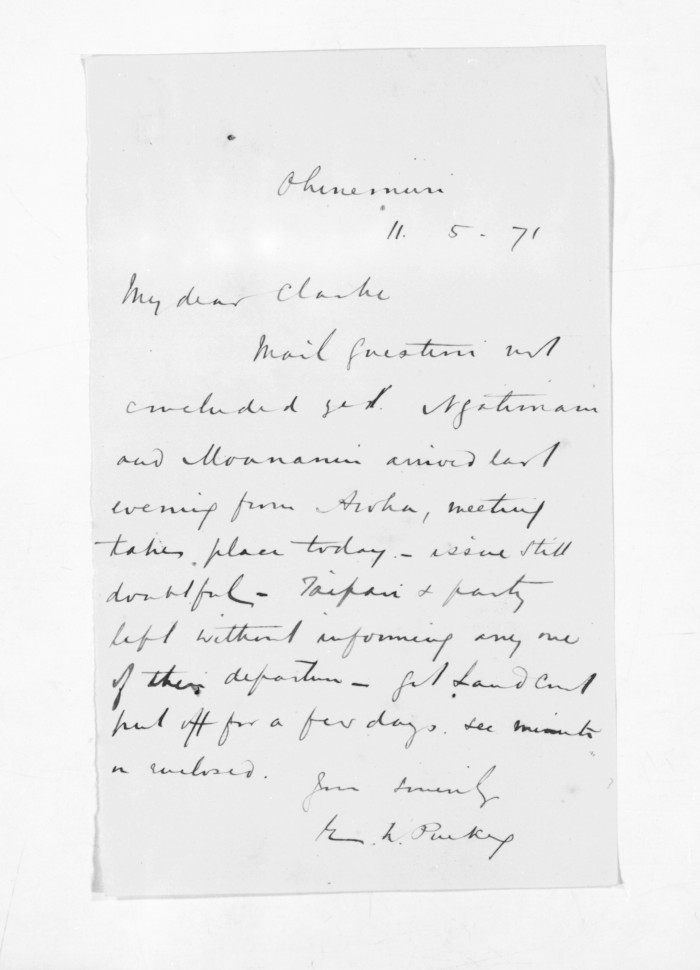 Ohinemuri
11. 5. 71
My dear Clarke
Mail question not
concluded yet.
and Moananui arrived last
evening from Aroha, meeting
takes place today - issue still
doubtful - Taipari & party
left without informing any one
of their departure - get Land Court
put off for a few days. see minute
on enclosed.
Yours sincerely
E. W. Puckey